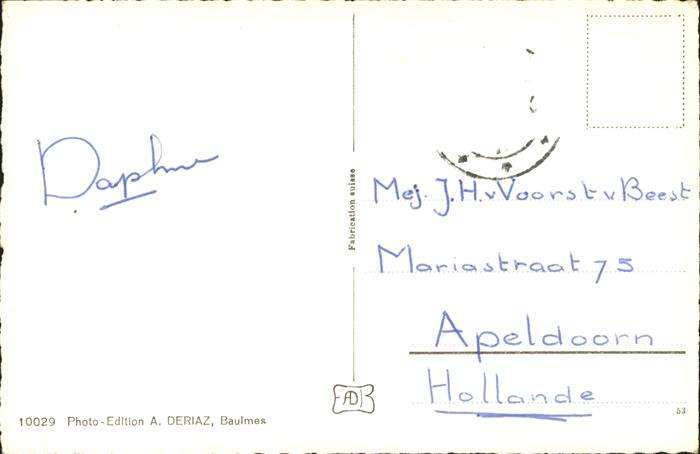 Daphne
Fabrication suisse
Mej. J.H. v Voorst v Beest
Mariastraat 75
Apeldoorn
Hollande
AD
10029 Photo-Edition A. DERIAZ, Baulmes
53